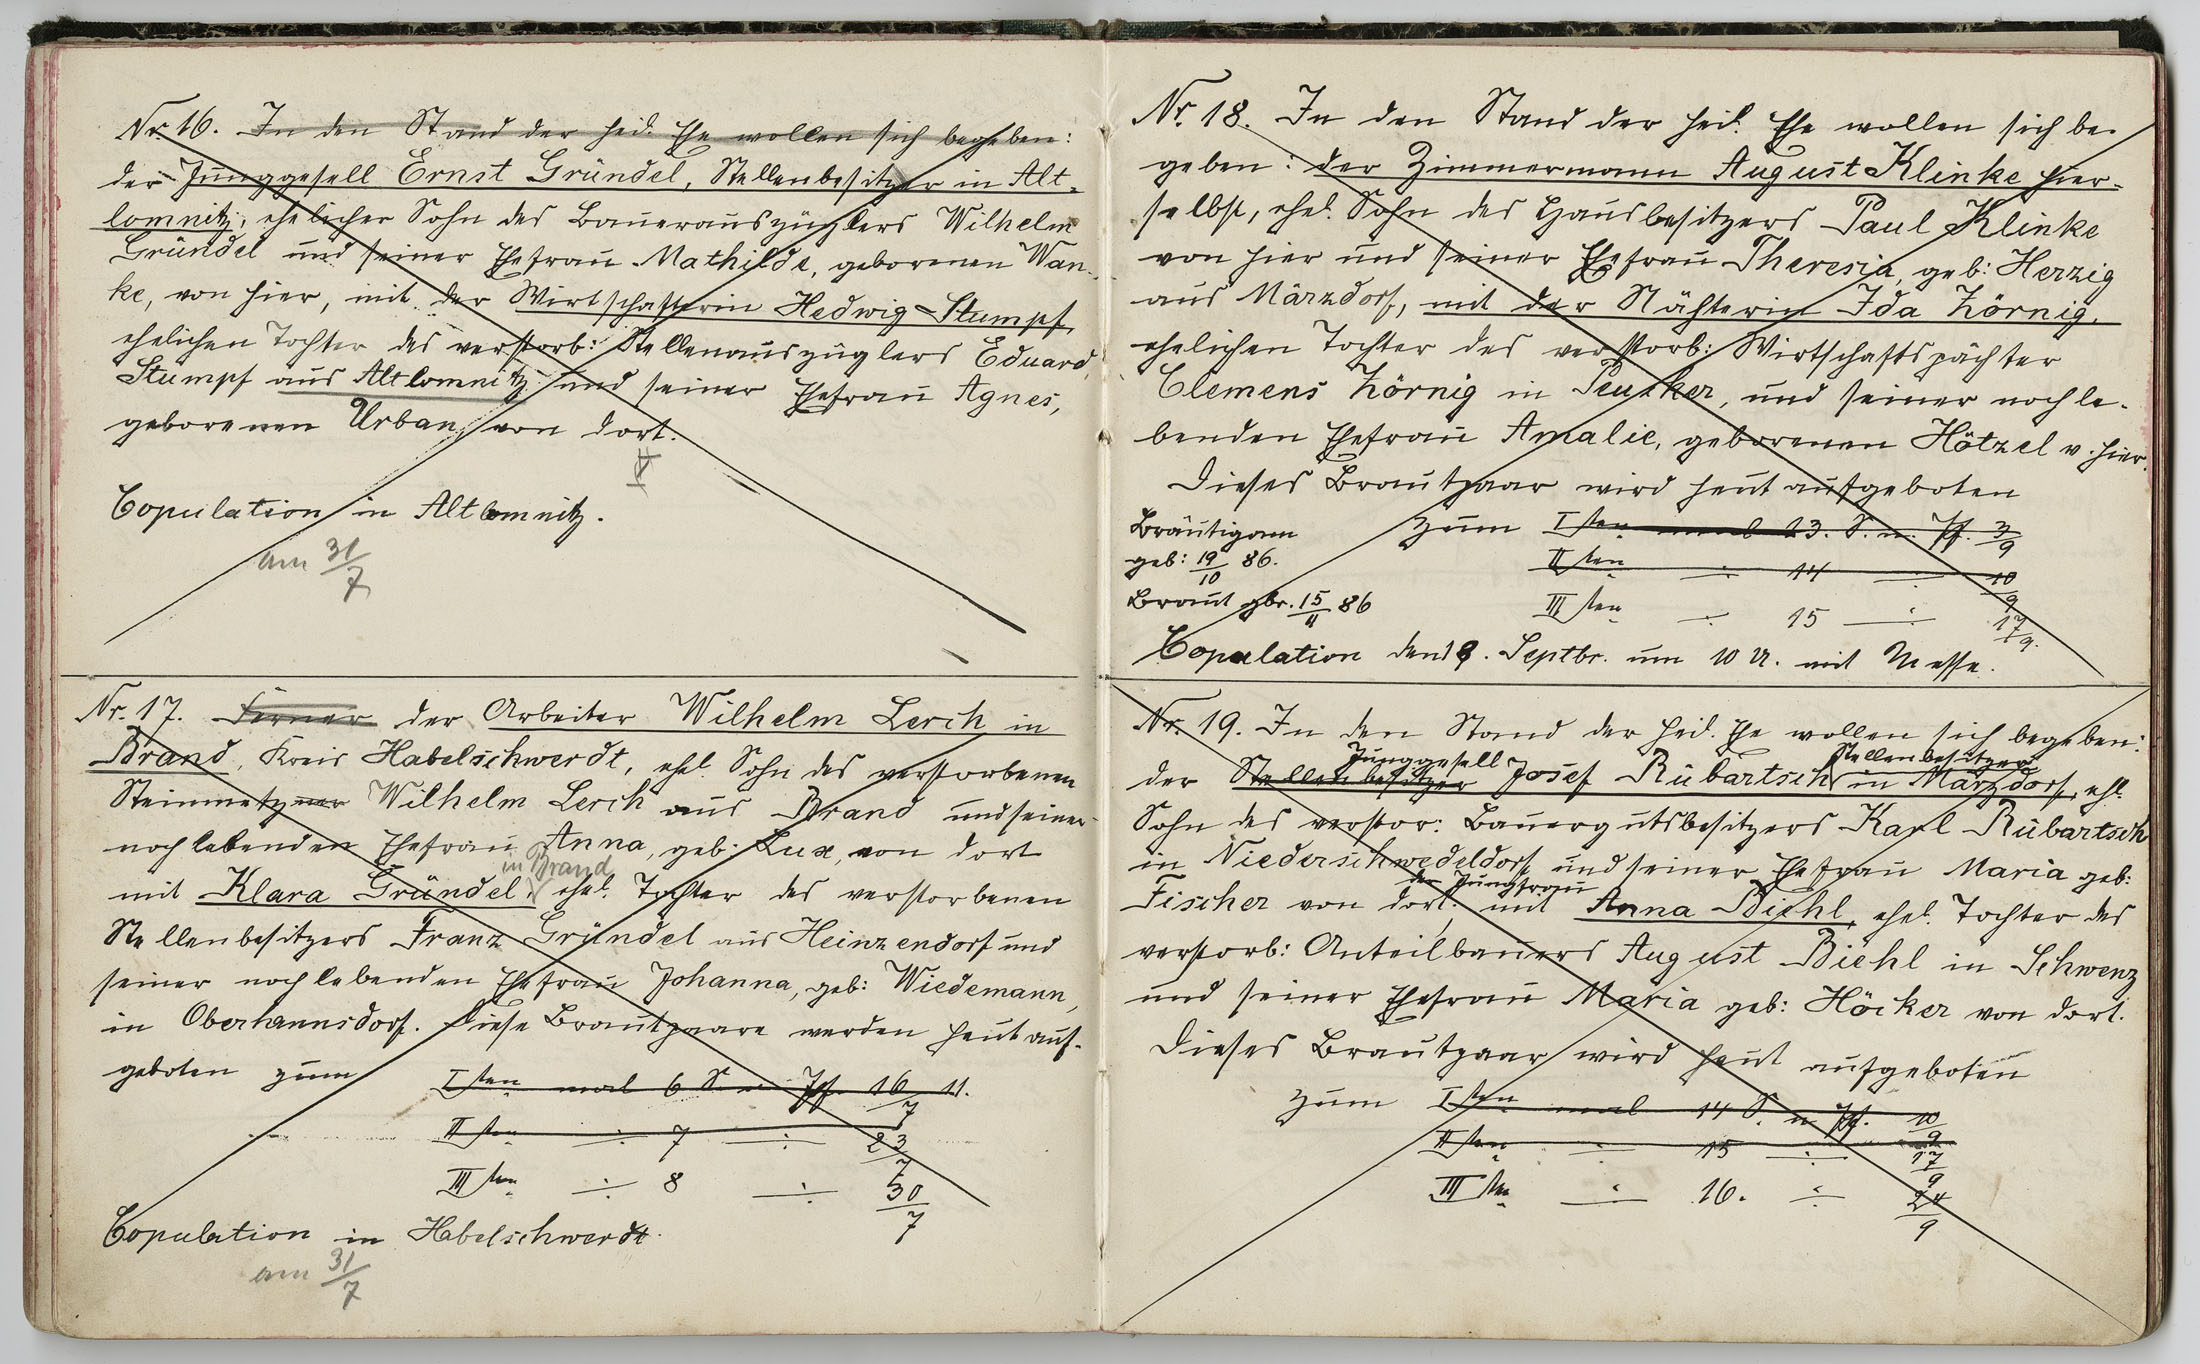 Nr. 16. In den Stand der heil. Ehe wollen sich begeben:
der Junggesell Ernst Gründel, Stellenbesitzer in Alt-
lomnitz, ehelicher Sohn des Bauerauszüglers Wilhelm
Gründel und seiner Ehefrau Mathilde, geborenen Wan-
ke, von hier, mit der Wirtschafterin Hedwig Stumpf,
ehelichen Tochter des verstorb: Stellenauszüglers Eduard
Stumpf aus Altlomnitz und seiner Ehefrau Agnes,
geborenen Urban, von dort.
Copulation in Altlomnitz.
am 31/7
Nr. 17. Ferner der Arbeiter Wilhelm Lerch in
Brand, Kreis Habelschwerdt, ehel. Sohn des verstorbenen
Steinmetzner Wilhelm Lerch aus Brand und seiner
noch lebenden Ehefrau Anna, geb: Lux, von dort
in Brand
mit Klara Gründel, ehel. Tochter des verstorbenen
Stellenbesitzers Franz Gründel aus Heinzendorf und
seiner noch lebenden Ehefrau Johanna, geb: Wiedemann,
in Oberhannsdorf. Diese Brautpaare werden heut auf-
geboten zum I sten mal 6 S. n. Pf. 16/7 11.
II ten ÷ 7 ÷ 23/7
III ten ÷ 8 ÷ 30/7
Copulation in Habelschwerdt.
am 31/7
Nr. 18. In den Stand der heil. Ehe wollen sich be-
geben: der Zimmermann August Klinke hier-
selbst, ehel. Sohn des Hausbesitzers Paul Klinke
von hier und seiner Ehefrau Theresia, geb: Herzig
aus Märzdorf, mit der Nähterin Ida Zörnig,
ehelichen Tochter des verstorb: Wirtschaftspächter
Clemens Zörnig in Peucker, und seiner noch le-
benden Ehefrau Amalie, geborenen Hötzel v. hier.
Dieses Brautpaar wird heut aufgeboten
Bräutigam zum I sten mal 13. S. n. Pf. 3/9
geb: 19/10 86. II ten ÷ 14 ÷ 10/9
Braut gbr. 15/4 86 III ten ÷ 15 ÷ 17/9.
Copulation den 18. Septbr. um 10 U. mit Messe.
Nr. 19. In den Stand der heil. Ehe wollen sich begeben:
Junggesell Stellenbesitzer
der Stellenbesitzer Josef Rübartsch in Märzdorf, ehl.
Sohn des verstor: Bauergutsbesitzers Karl Rübartsch
in Niederschwedeldorf und seiner Ehefrau Maria geb:
der Jungfrau
Fischer von dort. mit Anna Biehl, ehel. Tochter des
verstorb: Anteilbauers August Biehl in Schwenz
und seiner Ehefrau Maria geb: Höcker von dort.
Dieses Brautpaar wird heut aufgeboten
zum I sten mal 14 S. n. Pf. 10/9
II ten ÷ 15 ÷ 17/9
III ten ÷ 16. ÷ 24/9